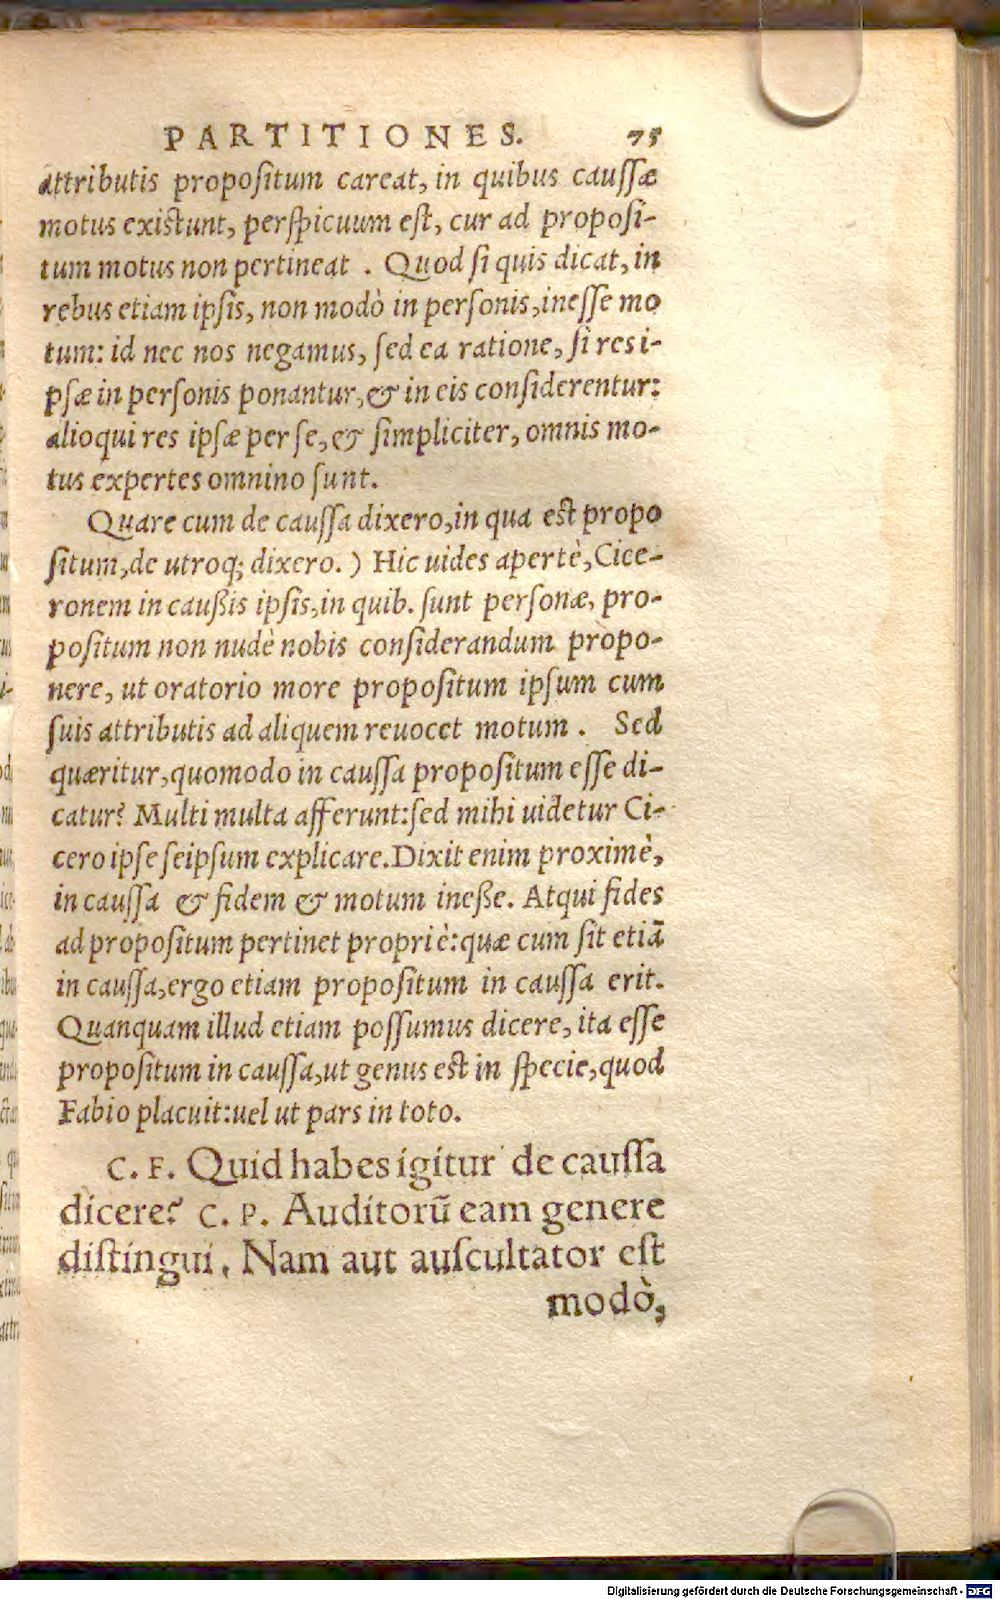 PARTITIONES. 75
attributis propoſitum careat, in quibus cauſſæ
motus existunt, perſpicuum eſt, cur ad propoſi-
tum motus non pertineat . Quod ſi quis dicat, in
rebus etiam ipſis, non modò in perſonis, ineſſe mo
tum: id nec nos negamus, ſed ea ratione, ſi res i-
pſæ in perſonis ponantur, & in eis conſiderentur:
alioqui res ipſæ per ſe, & ſimpliciter, omnis mo-
tus expertes omnino ſunt.
Quare cum de cauſſa dixero, in qua est propo
ſitum, de utroq; dixero. ) Hic uides apertè, Cice-
ronem in caußis ipſis, in quib. ſunt perſonæ, pro-
poſitum non nudè nobis conſiderandum propo-
nere, ut oratorio more propoſitum ipſum cum
ſuis attributis ad aliquem reuocet motum . Sed
quæritur, quomodo in cauſſa propoſitum eſſe di-
catur? Multi multa afferunt: ſed mihi uidetur Ci-
cero ipſe ſeipſum explicare. Dixit enim proximè,
in cauſſa & fidem & motum ineße. Atqui fides
ad propoſitum pertinet propriè: quæ cum ſit etiã
in cauſſa, ergo etiam propoſitum in cauſſa erit.
Quanquam illud etiam poſſumus dicere, ita eſſe
propoſitum in cauſſa, ut genus est in ſpecie, quod
Fabio placuit: uel ut pars in toto.
C. F. Quid habes igitur de cauſſa
dicere? C. P. Auditorũ eam genere
diſtingui. Nam aut auſcultator eſt
modò,
Digitalisierung gefördert durch die Deutsche Forschungsgemeinschaft - DFG